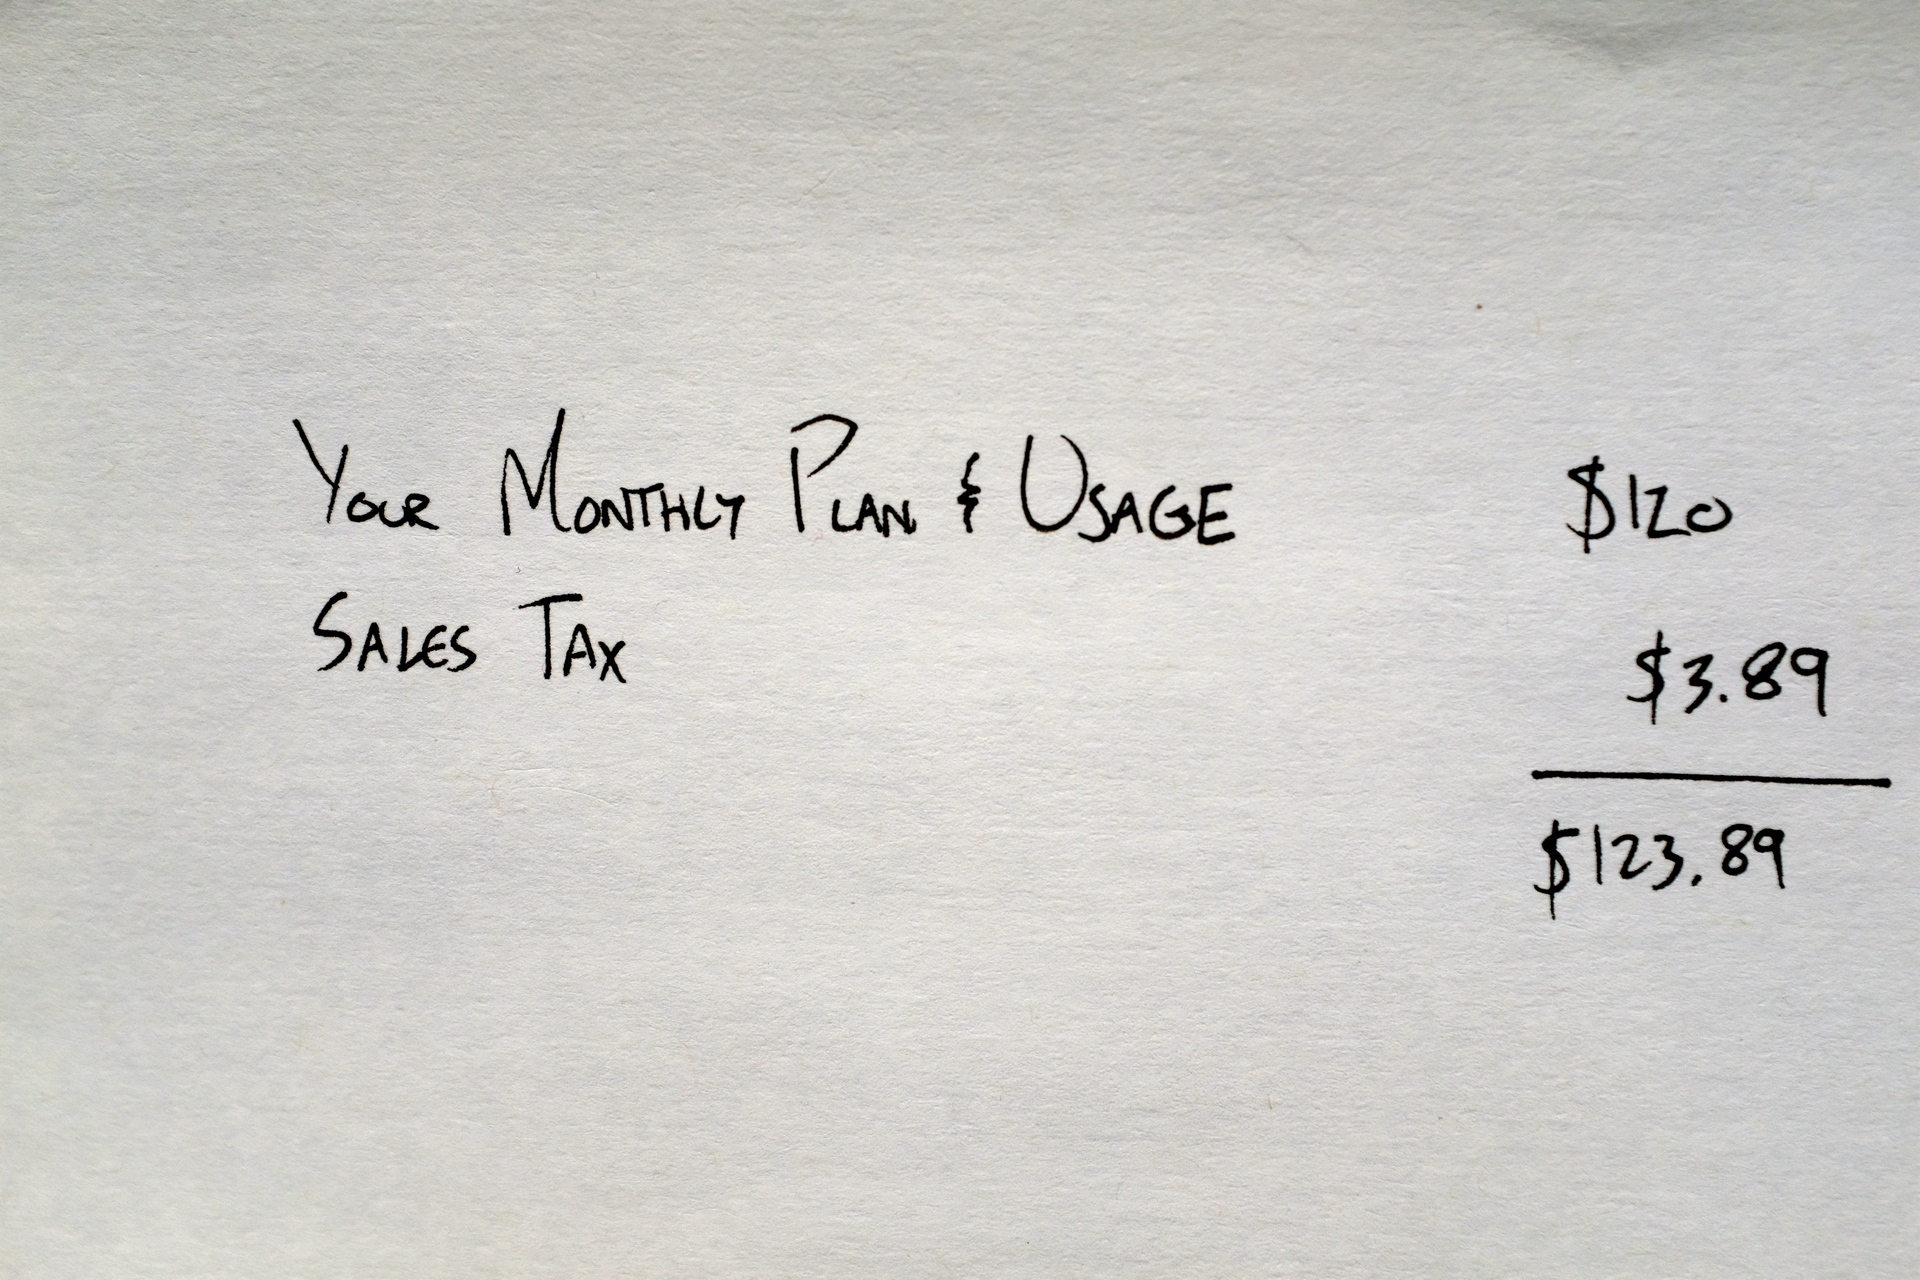 Your Monthly Plan & Usage $120
Sales Tax $3.89
$123.89